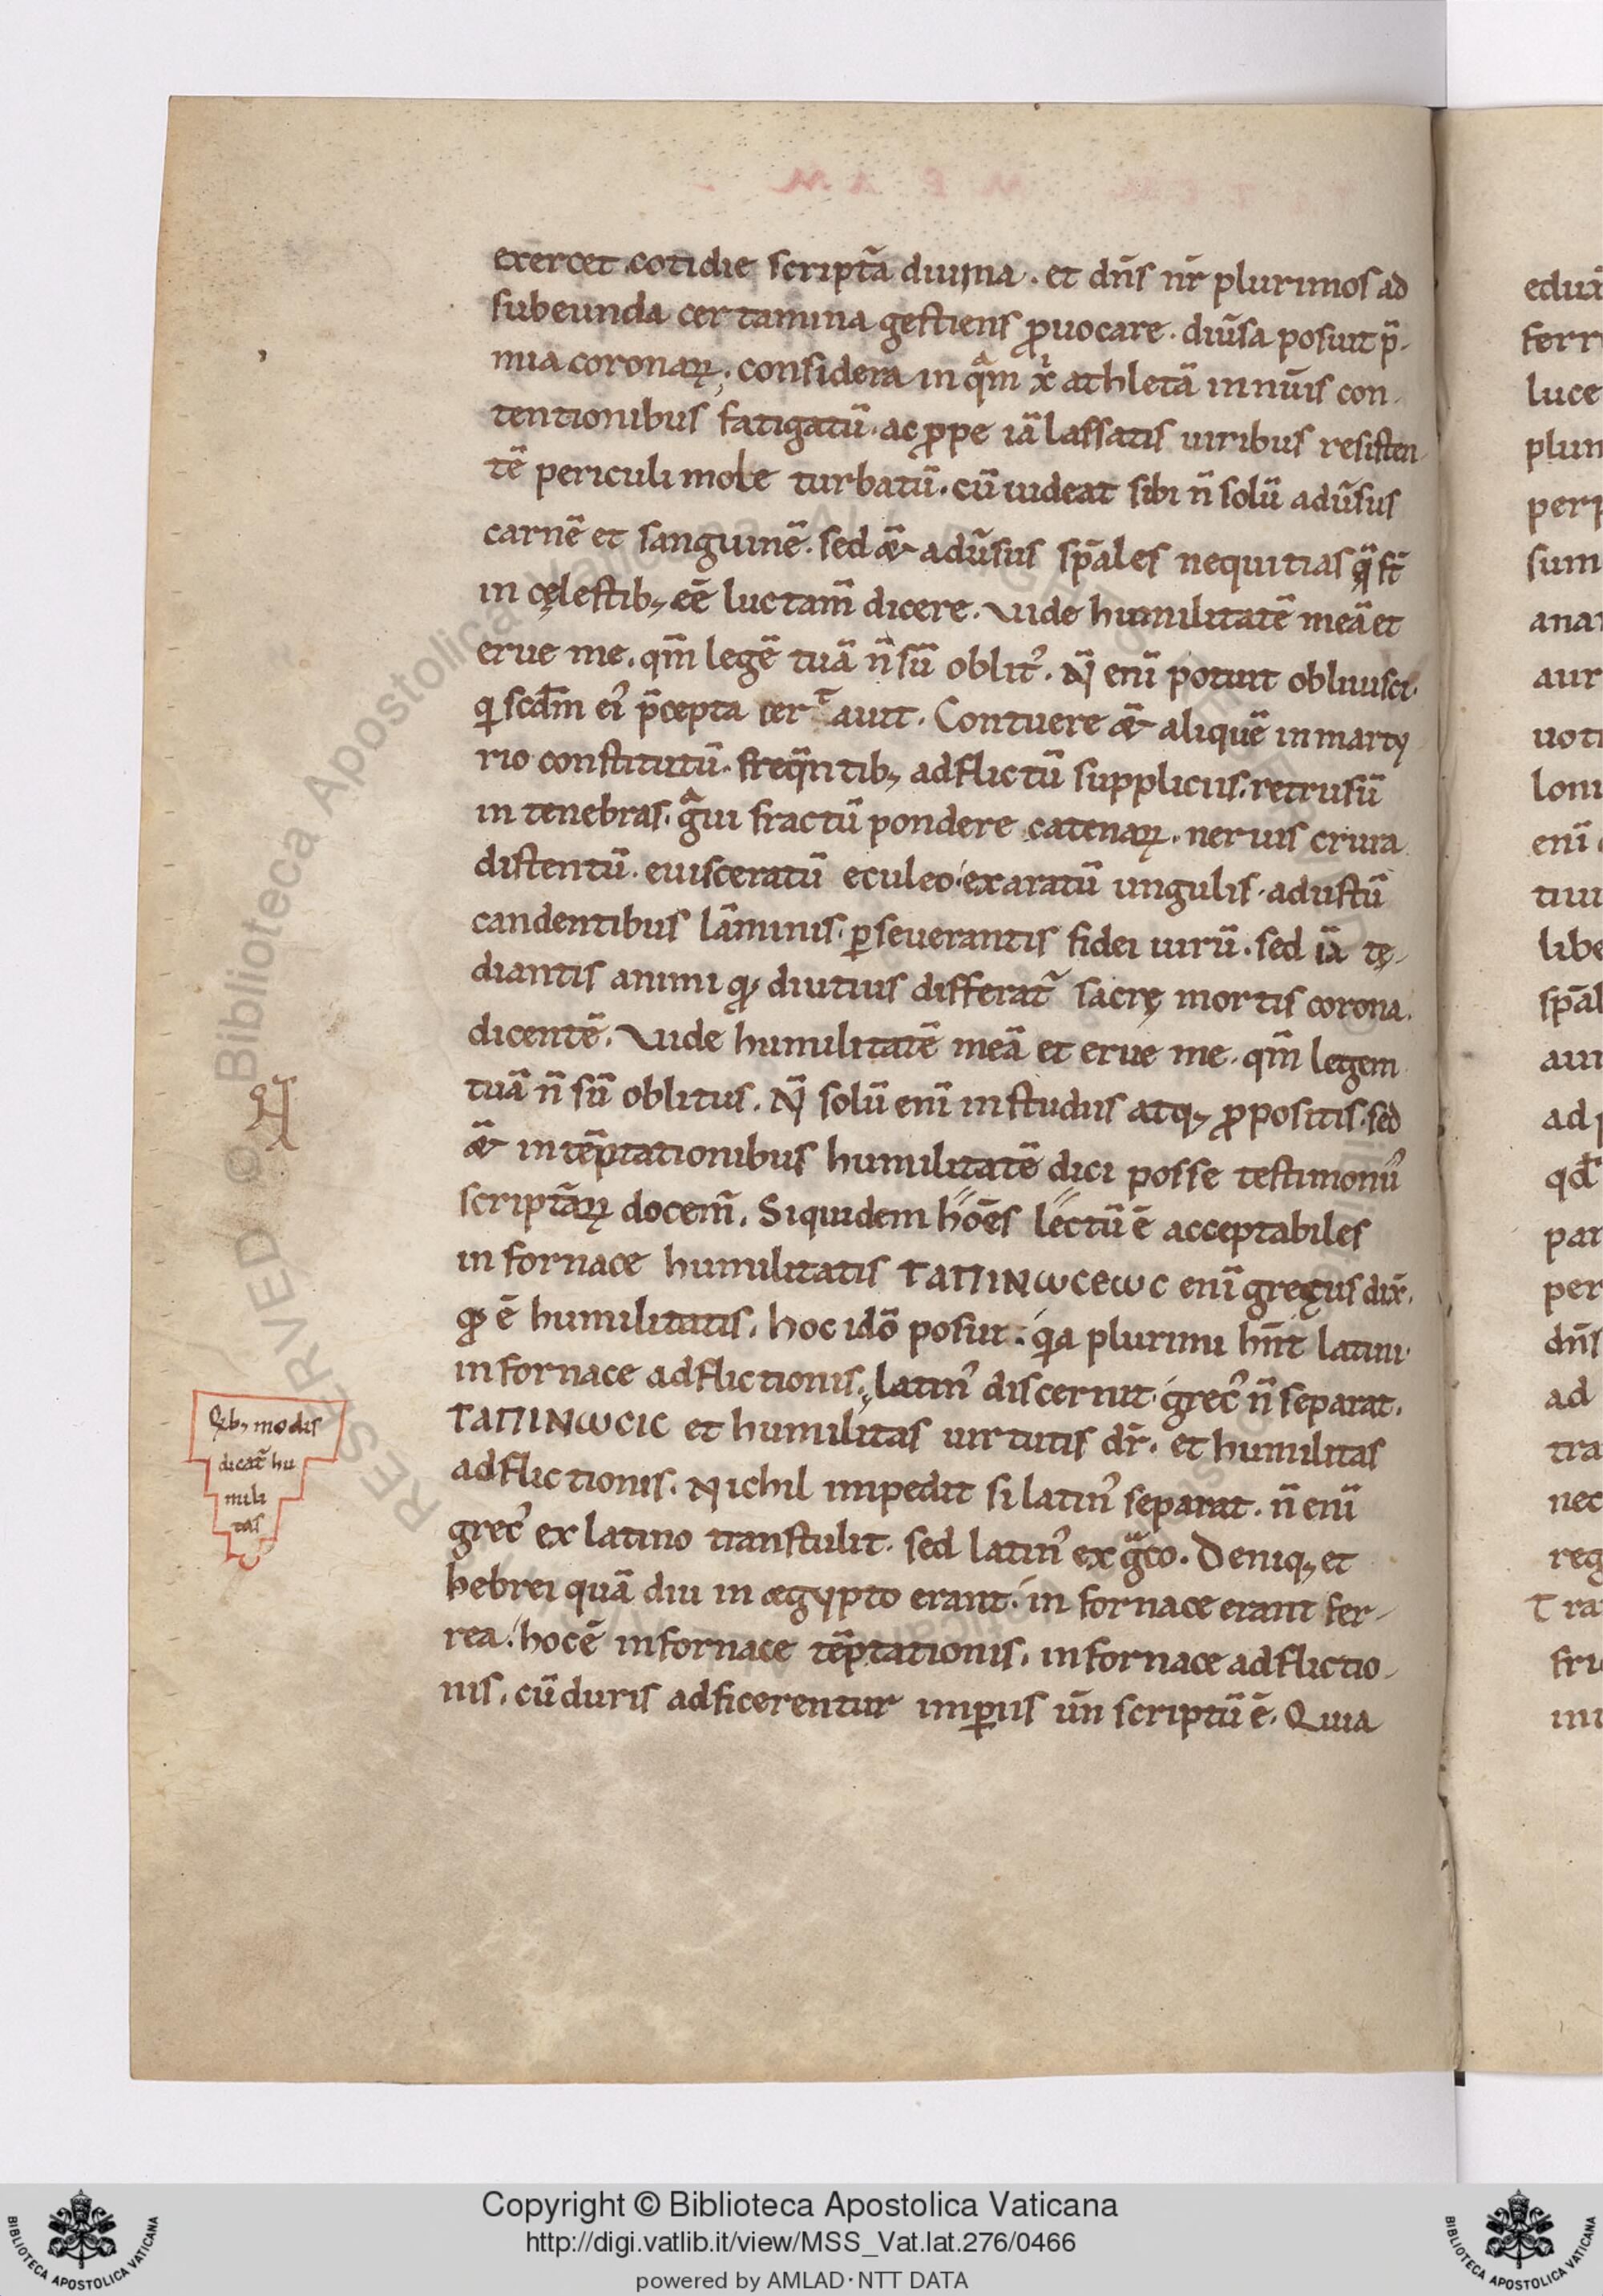 exercet cotidie scriptã diuina. et dñs nr̃ plurimos ad
subeunda certamina gestiens ꝓuocare. diũsa posuit p̃-
mia coronaꝝ. considera in qͣm xp̃i athletã innũis con-
tentionibus fatigatũ. ac ꝓpe iã lassatis uiribus resisten-
tẽ periculi mole turbatũ. cũ uideat sibi ñ solũ adũsus
carnẽ et sanguinẽ. sed æ̃ adũsus sp̃ales nequitias q̃ st̃
in cęlestib; eẽ luctam̃ dicere. Uide humilitatẽ meã et
erue me. qm̃ legẽ tuã ñ sũ oblit᾿. Ñ enĩ potuit obliuisci.
qi scdm̃ ei᾿ p̃cepta certauit. Contuere æ̃ aliquẽ in marty
rio constitutũ. freq̃ntib; adflictũ suppliciis. retrusũ
in tenebras. gͣui fractũ pondere catenaꝝ. neruis crura
distentũ. euisceratũ eculeo. exaratũ ungulis. adustũ
candentibus lãminis. ꝑseuerantis fidei uirũ. sed iã tę-
diantis animi qđ diutius differat̃ sacrę mortis corona.
dicentẽ. Uide humilitatẽ meã et erue me. qm̃ legem
tuã ñ sũ oblitus. Ñ solũ enĩ in studiis atq; ꝓpositis. sed
æ̃ in tẽptationibus humilitatẽ dici posse testimoniũ
scriptãꝝ docem̃. Siquidem hões lectũ ẽ acceptabiles
in fornace humilitatis ΤΑΠΙΝωCΕωC enĩ gręcus dix̃.
qđ ẽ humilitatis. hoc idõ posui. qia plurimi hñt latini
in fornace adflictionis. latin᾿ discernit. grec᾿ ñ separat.
ΤΑΠΙΝωCΙC et humilitas uirtutis dr̃. et humilitas
adflictionis. Nichil impedit si latin᾿ separat. ñ enĩ
grec᾿ ex latino transtulit. sed latin᾿ ex gͣco. Deniq; et
hebrei quã diu in ægypto erant. in fornace erant fer-
rea. hoc ẽ in fornace tẽptationis. in fornace adflictio-
nis. cũ duris adficerentur imꝑiis uñ scriptũ ẽ. Quia
Qib; modis
dicat̃ hu
mili
tas
Copyright © Biblioteca Apostolica Vaticana
http://digi.vatlib.it/view/MSS_Vat.lat.276/0466
powered by AMLAD·NTT DATA
BIBLIOTECA APOSTOLICA VATICANA
BIBLIOTECA APOSTOLICA VATICANA